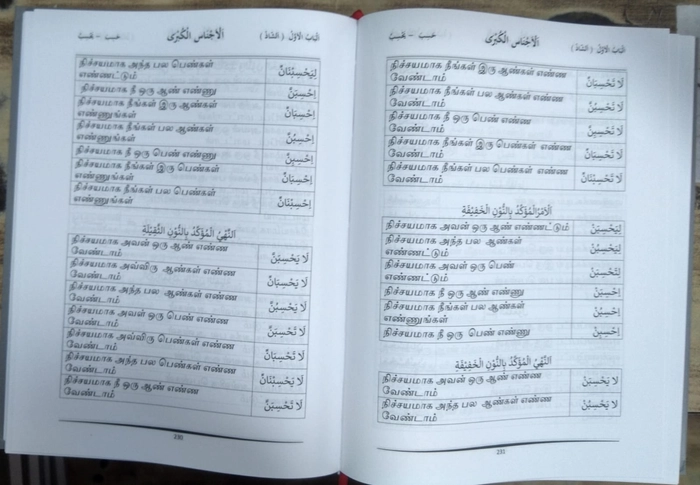 اَلْبَابُ الْاَوَّلُ ( اَلنَّشَاطُ ) اَلْاَجْنَاسُ الْكُبْرَى حَسِبَ – يَحْسِبُ
நிச்சயமாக அந்த பல பெண்கள் எண்ணட்டும் لِيَحْسِبْنَانِّ
நிச்சயமாக நீ ஒரு ஆண் எண்ணு اِحْسِبَنَّ
நிச்சயமாக நீங்கள் இரு ஆண்கள் எண்ணுங்கள் اِحْسِبَانِّ
நிச்சயமாக நீங்கள் பல ஆண்கள் எண்ணுங்கள் اِحْسِبُنَّ
நிச்சயமாக நீ ஒரு பெண் எண்ணு اِحْسِبِنَّ
நிச்சயமாக நீங்கள் இரு பெண்கள் எண்ணுங்கள் اِحْسِبَانِّ
நிச்சயமாக நீங்கள் பல பெண்கள் எண்ணுங்கள் اِحْسِبْنَانِّ
اَلنَّهْيُ الْمُؤَكَّدُ بِالنُّوْنِ الثَّقِيْلَةِ
நிச்சயமாக அவன் ஒரு ஆண் எண்ண வேண்டாம் لَا يَحْسِبَنَّ
நிச்சயமாக அவ்விரு ஆண்கள் எண்ண வேண்டாம் لَا يَحْسِبَانِّ
நிச்சயமாக அந்த பல ஆண்கள் எண்ண வேண்டாம் لَا يَحْسِبُنَّ
நிச்சயமாக அவள் ஒரு பெண் எண்ண வேண்டாம் لَا تَحْسِبَنَّ
நிச்சயமாக அவ்விரு பெண்கள் எண்ண வேண்டாம் لَا تَحْسِبَانِّ
நிச்சயமாக அந்த பல பெண்கள் எண்ண வேண்டாம் لَا يَحْسِبْنَانِّ
நிச்சயமாக நீ ஒரு ஆண் எண்ண வேண்டாம் لَا تَحْسِبَنَّ
اَلْبَابُ الْاَوَّلُ ( اَلنَّشَاطُ ) اَلْاَجْنَاسُ الْكُبْرَى حَسِبَ – يَحْسِبُ
நிச்சயமாக நீங்கள் இரு ஆண்கள் எண்ண வேண்டாம் لَا تَحْسِبَانِّ
நிச்சயமாக நீங்கள் பல ஆண்கள் எண்ண வேண்டாம் لَا تَحْسِبُنَّ
நிச்சயமாக நீ ஒரு பெண் எண்ண வேண்டாம் لَا تَحْسِبِنَّ
நிச்சயமாக நீங்கள் இரு பெண்கள் எண்ண வேண்டாம் لَا تَحْسِبَانِّ
நிச்சயமாக நீங்கள் பல பெண்கள் எண்ண வேண்டாம் لَا تَحْسِبْنَانِّ
اَلْاَمْرُ الْمُؤَكَّدُ بِالنُّوْنِ الْخَفِيْفَةِ
நிச்சயமாக அவன் ஒரு ஆண் எண்ணட்டும் لِيَحْسِبَنْ
நிச்சயமாக அந்த பல ஆண்கள் எண்ணட்டும் لِيَحْسِبُنْ
நிச்சயமாக அவள் ஒரு பெண் எண்ணட்டும் لِتَحْسِبَنْ
நிச்சயமாக நீ ஒரு ஆண் எண்ணு اِحْسِبَنْ
நிச்சயமாக நீங்கள் பல ஆண்கள் எண்ணுங்கள் اِحْسِبُنْ
நிச்சயமாக நீ ஒரு பெண் எண்ணு اِحْسِبِنْ
اَلنَّهْيُ الْمُؤَكَّدُ بِالنُّوْنِ الْخَفِيْفَةِ
நிச்சயமாக அவன் ஒரு ஆண் எண்ண வேண்டாம் لَا يَحْسِبَنْ
நிச்சயமாக அந்த பல ஆண்கள் எண்ண வேண்டாம் لَا يَحْسِبُنْ